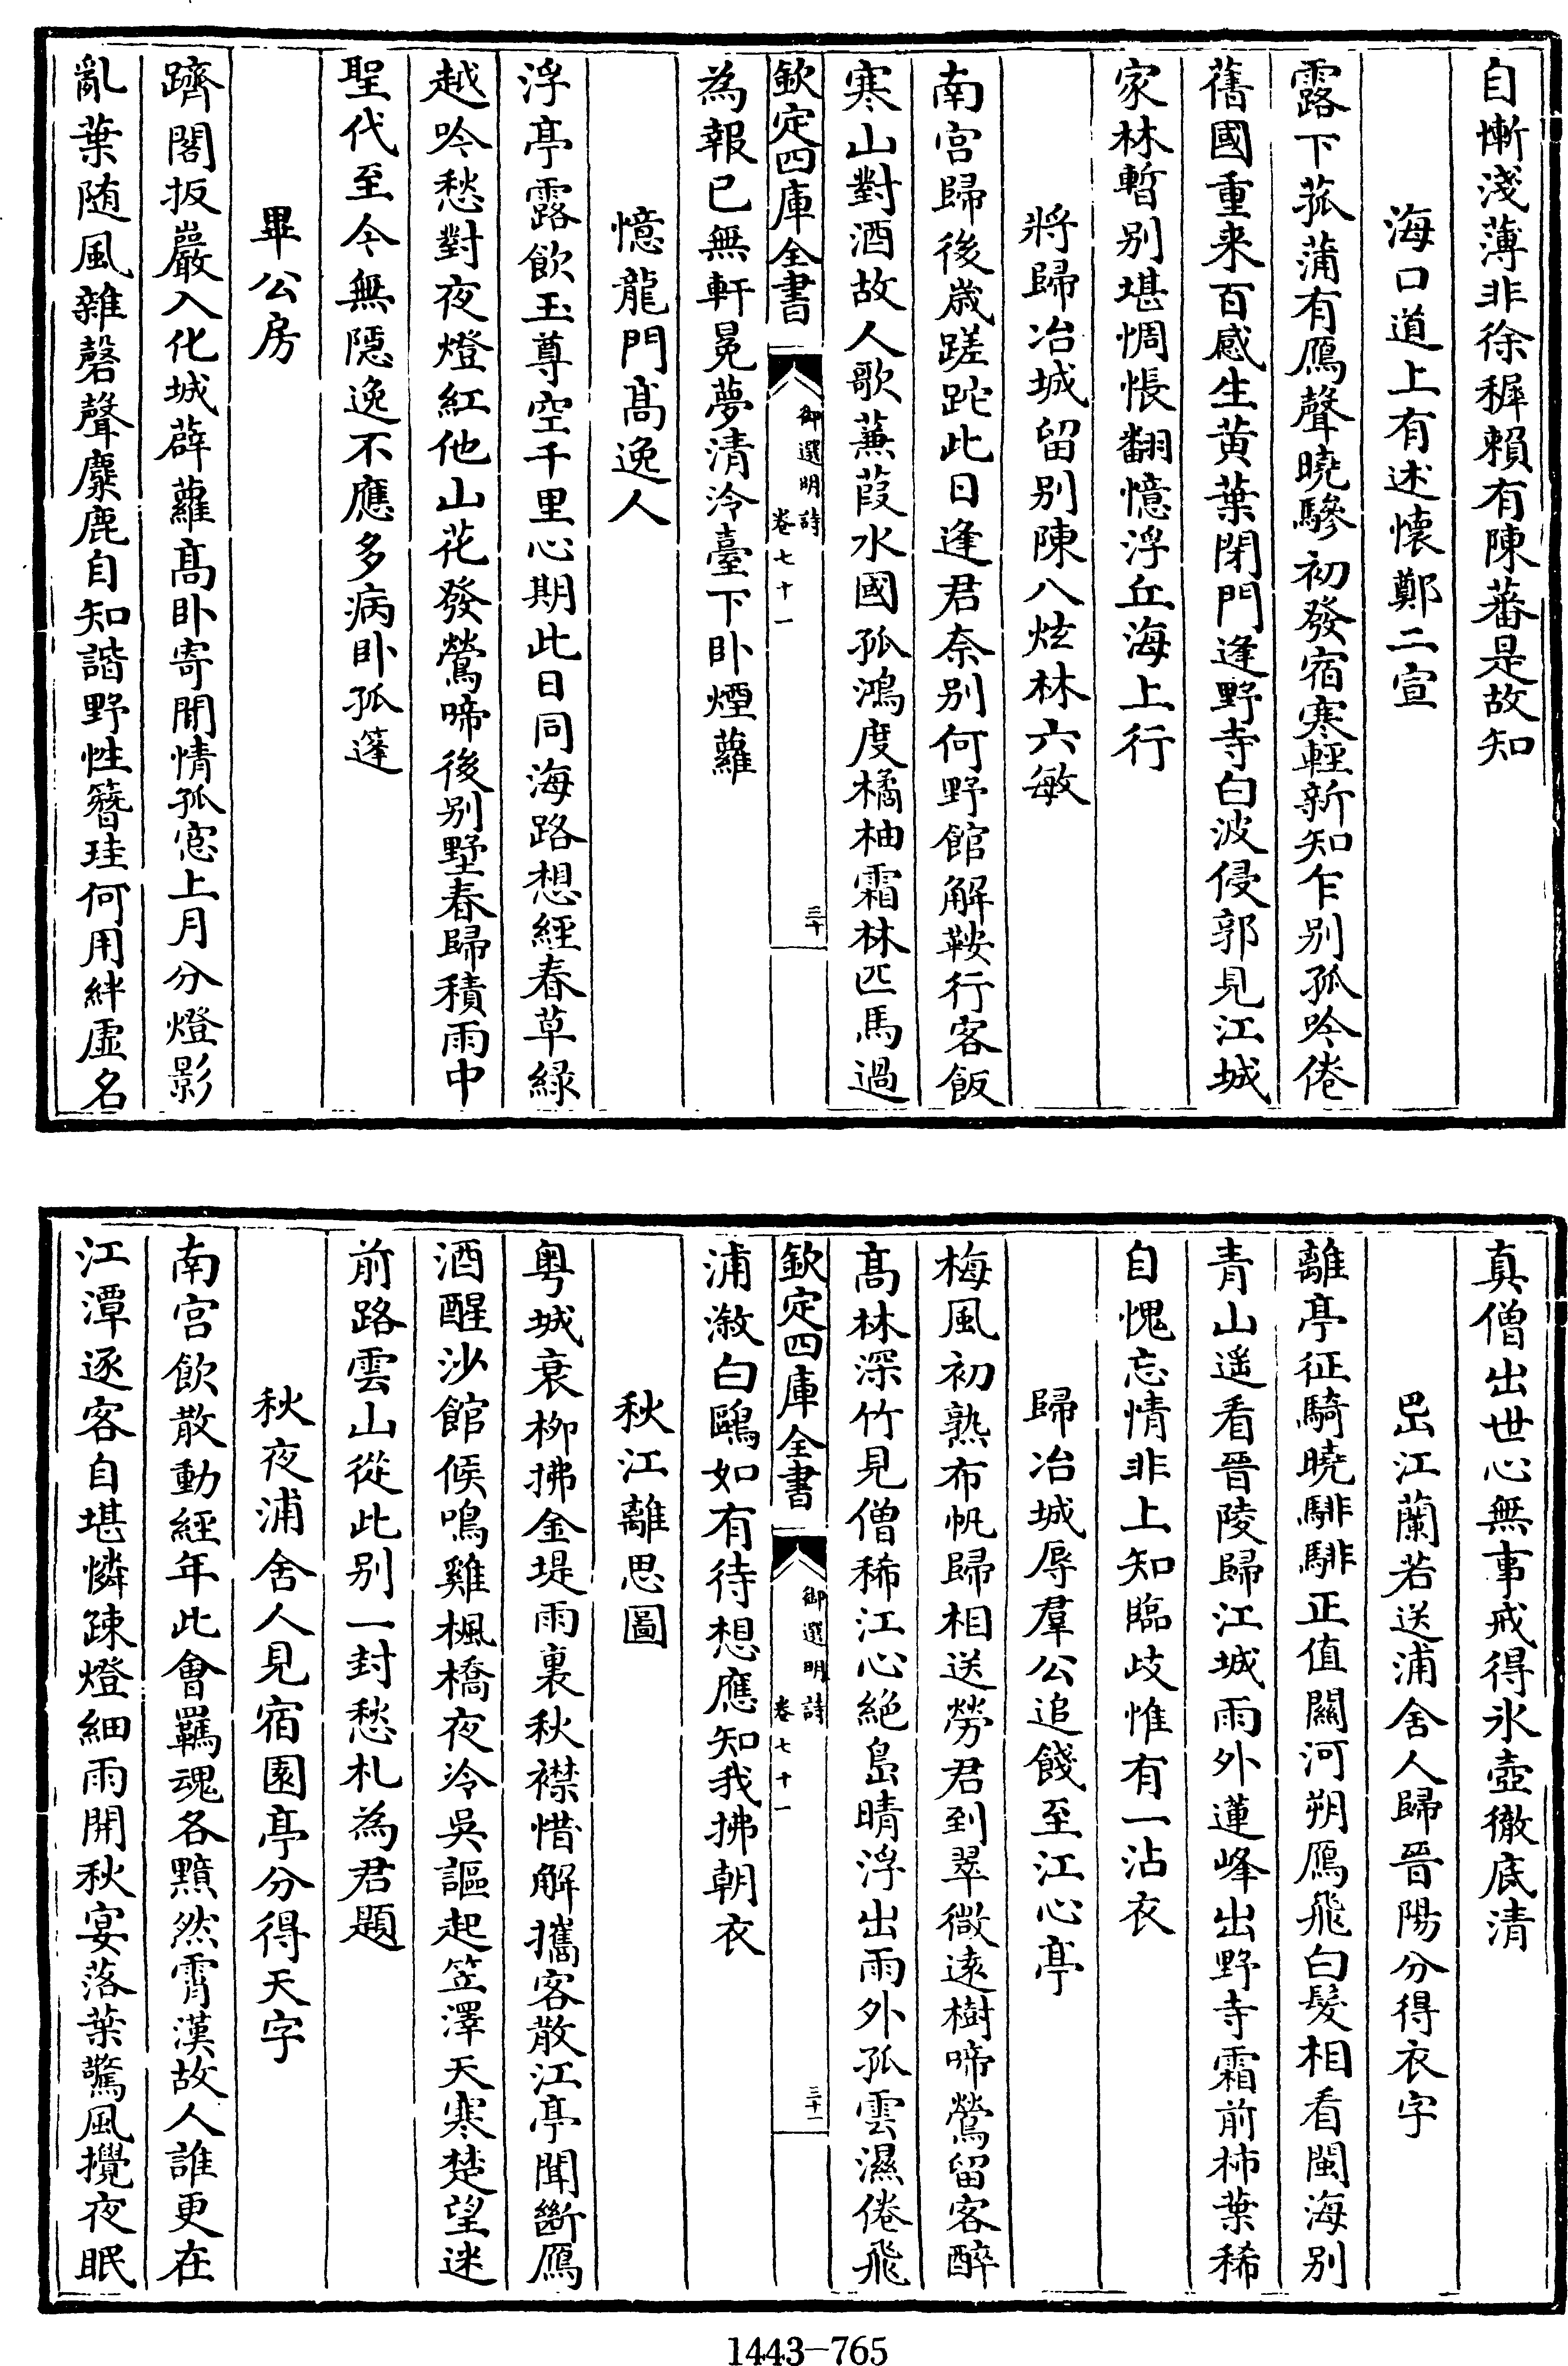 自慚淺薄非徐穉賴有陳蕃是故知
海口道上有述懷鄭二宣
露下菰蒲有鴈聲曉驂初發宿寒輕新知乍别孤吟倦
舊國重来百感生黄葉閉門逢野寺白波侵郭見江城
家林暫别堪惆悵翻憶浮丘海上行
將歸冶城留别陳八炫林六敏
南宫歸後歳蹉跎此日逢君奈别何野館解鞍行客飯
寒山對酒故人歌蒹葭水國孤鴻度橘柚霜林匹馬過
欽定四庫全書
御選明詩
卷七十一
三十
為報已無軒冕夢清泠臺下卧煙蘿
憶龍門髙逸人
浮亭露飲玉尊空千里心期此日同海路想經春草緑
越吟愁對夜燈紅他山花發鶯啼後别墅春歸積雨中
聖代至今無隠逸不應多病卧孤篷
畢公房
躋閣扳巖入化城薜蘿髙卧寄閒情孤窓上月分燈影
亂葉随風雜磬聲麋鹿自知諧野性簪珪何用絆虚名
真僧出世心無事戒得氷壺徹底清
巴江蘭若送浦舍人歸晉陽分得衣字
離亭征騎曉騑騑正值關河朔鴈飛白髮相看閩海别
青山遥看晉陵歸江城雨外蓮峰出野寺霜前柿葉稀
自愧忘情非上知臨歧惟有一沾衣
歸冶城辱羣公追餞至江心亭
梅風初熟布帆歸相送勞君到翠微逺樹啼鶯留客醉
髙林深竹見僧稀江心絶島晴浮出雨外孤雲濕倦飛
欽定四庫全書
御選明詩
卷七十一
三十一
浦溆白鷗如有待想應知我拂朝衣
秋江離思圖
粤城衰柳拂金堤雨裏秋襟惜解攜客散江亭聞斷鴈
酒醒沙館候鳴雞楓橋夜泠吳謳起笠澤天寒楚望迷
前路雲山從此别一封愁札為君題
秋夜浦舍人見宿園亭分得天字
南宫飲散動經年此會羈魂各黯然霄漢故人誰更在
江潭逐客自堪憐疎燈細雨開秋宴落葉驚風攪夜眠
1443-765